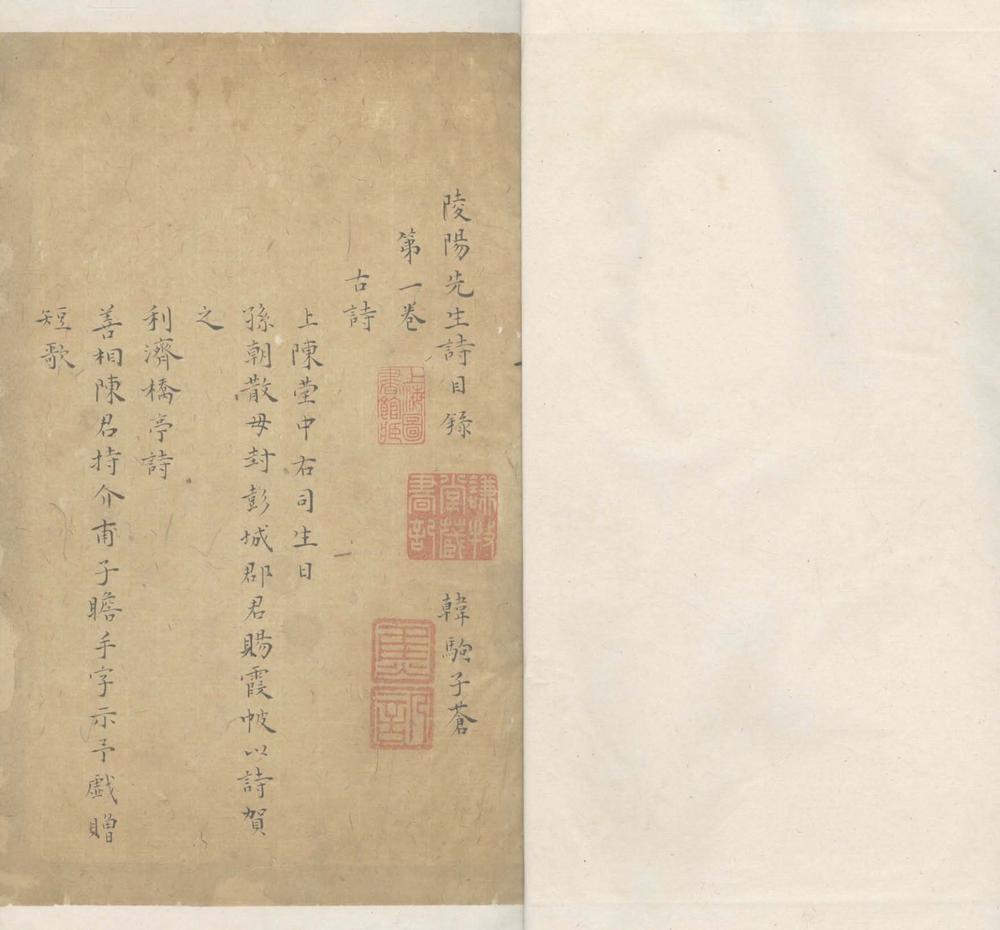 陵陽先生詩目錄 韓駒子蒼
第一卷
古詩
上陳瑩中右司生日
孫朝散母封彭城郡君賜霞帔以詩賀
之
利濟橋亭詩
善相陳君持介甫子瞻手字示予戲贈
短歌
上海圖
書館藏
謙牧
堂藏
書記